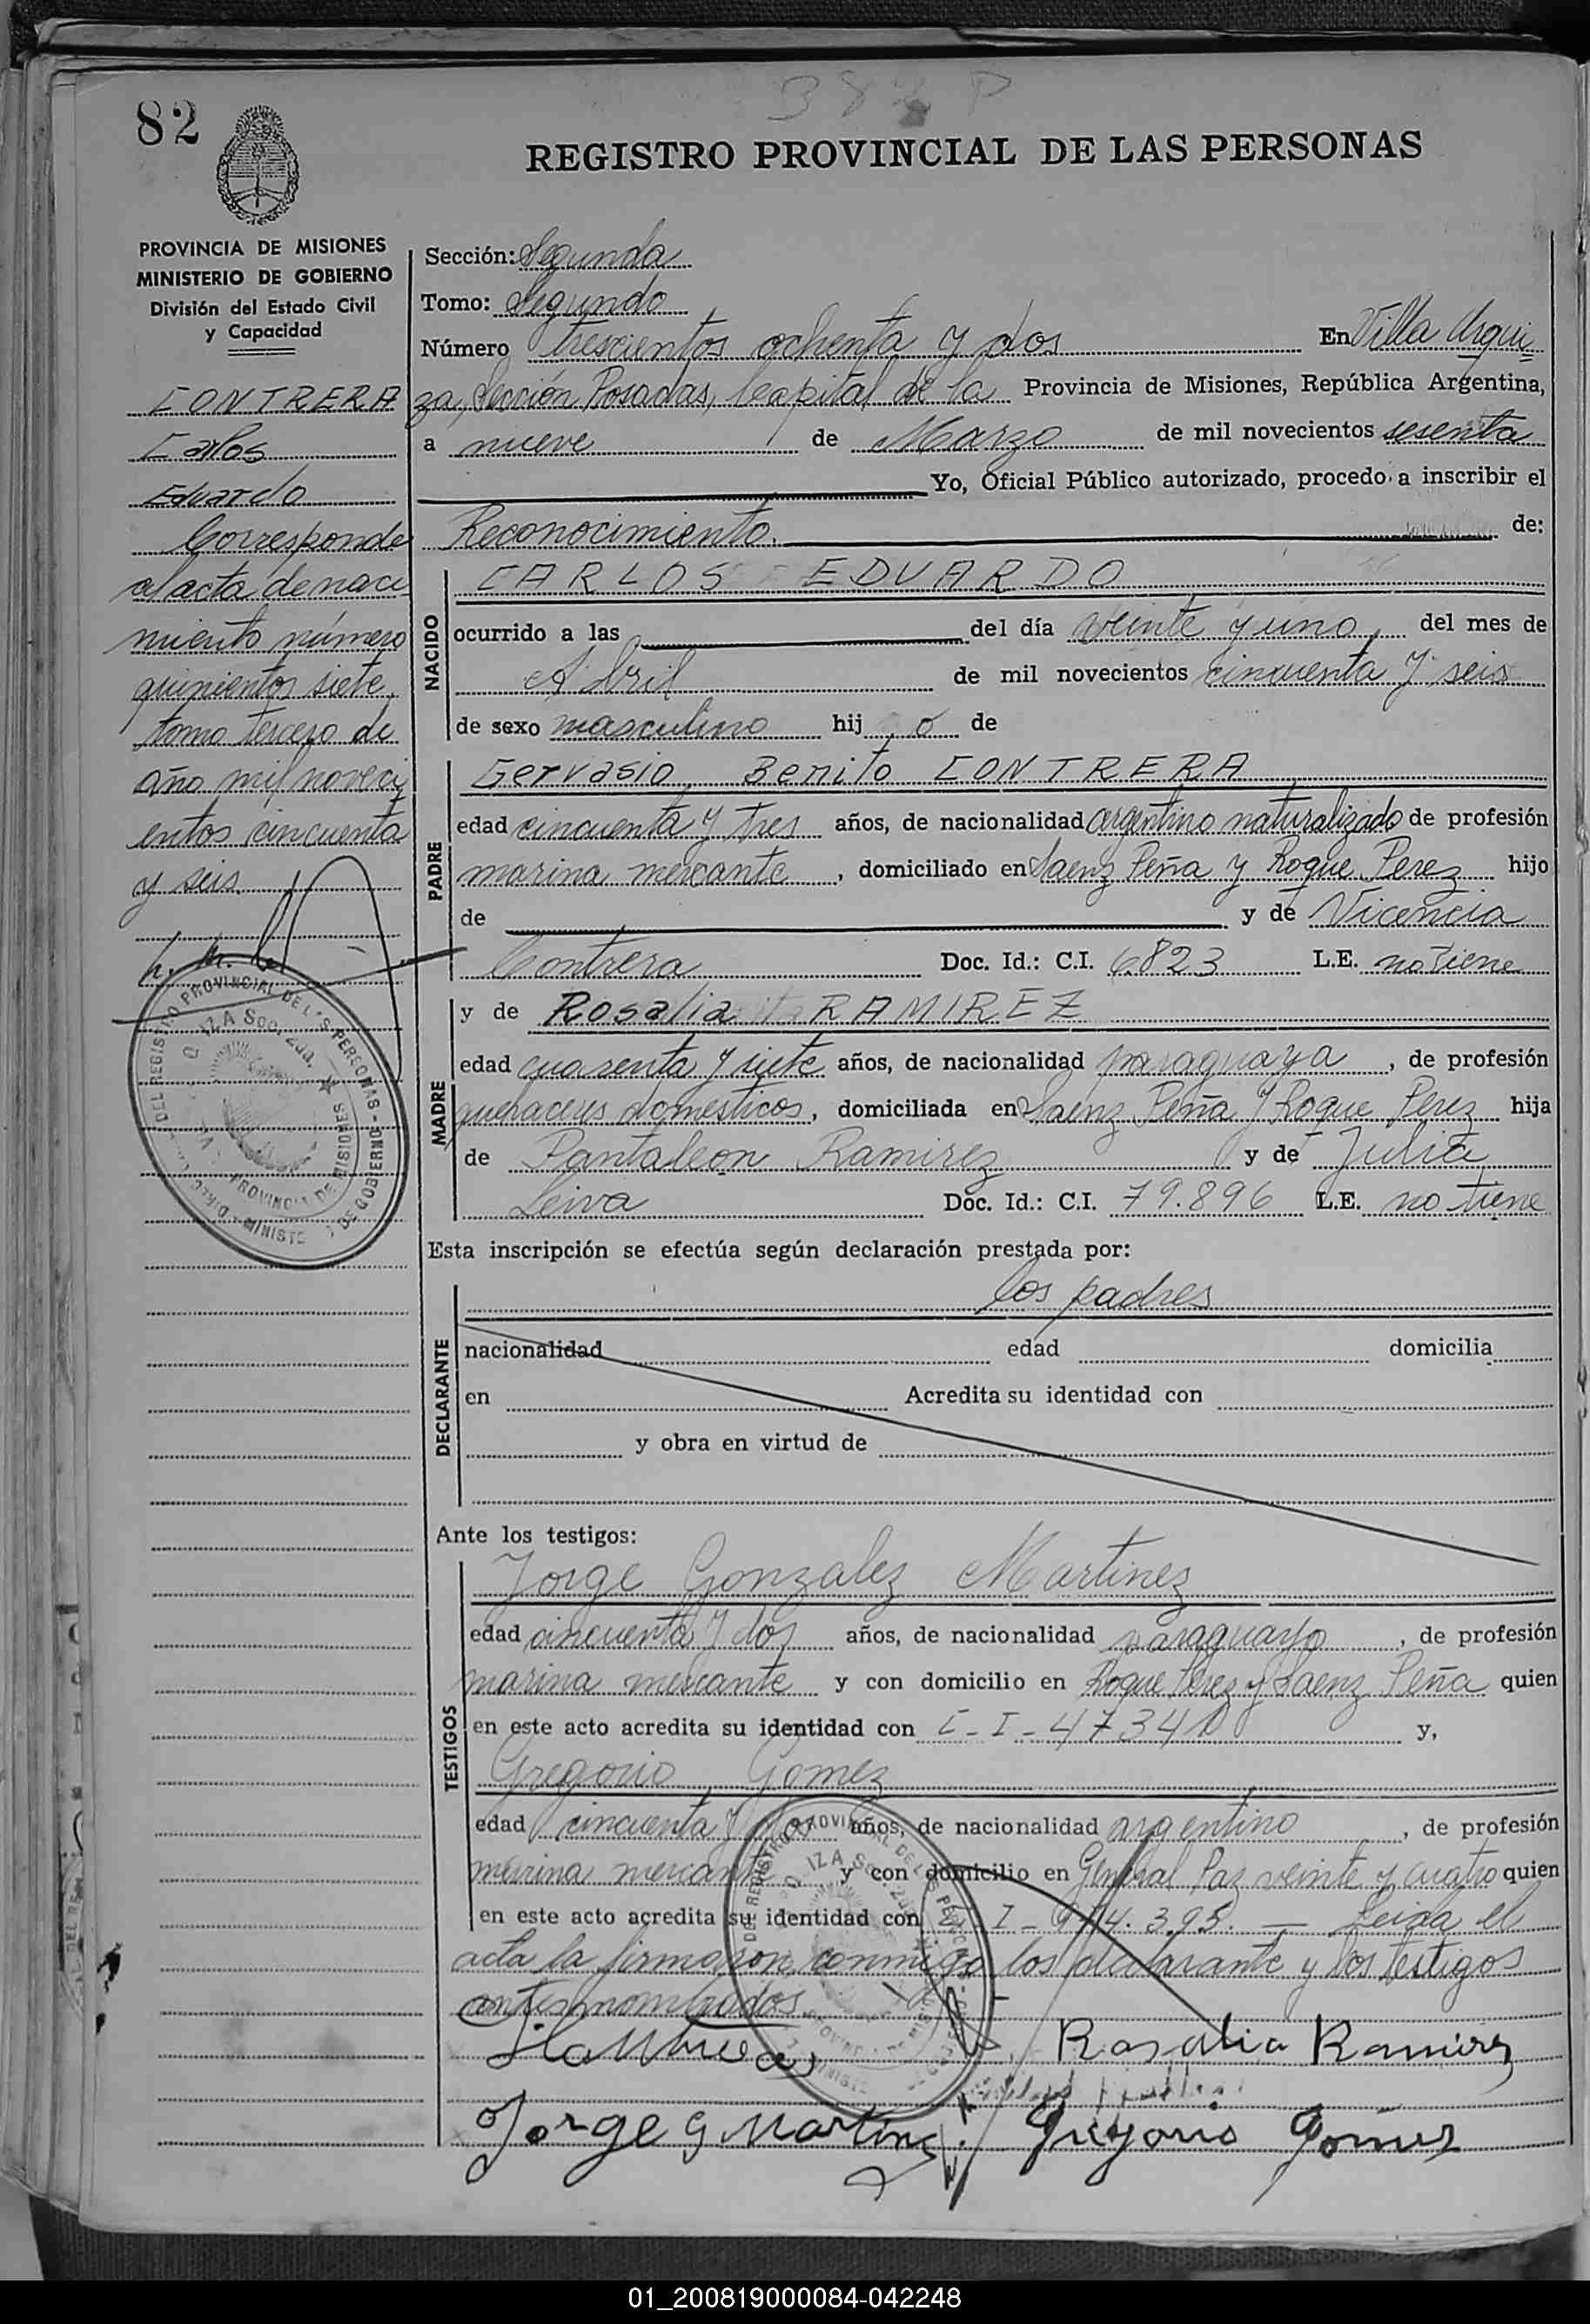 382 P
82
REGISTRO PROVINCIAL DE LAS PERSONAS
PROVINCIA DE MISIONES
MINISTERIO DE GOBIERNO
División del Estado Civil
y Capacidad
CONTRERA
Carlos
Eduardo
Corresponde
al acta de naci
miento número
quinientos siete,
tomo tercero de
año mil noveci
entos cincuenta
y seis.
Sección: Segunda
Tomo: Segundo
Número trescientos ochenta y dos En Villa Urqui=
za, Sección Posadas, Capital de la Provincia de Misiones, República Argentina,
a nueve de Marzo de mil novecientos sesenta
Yo, Oficial Público autorizado, procedo a inscribir el
Reconocimiento. de:
NACIDO
CARLOS EDUARDO
ocurrido a las del día veinte y uno, del mes de
Abril de mil novecientos cincuenta y seis
de sexo masculino hij o de
PADRE
Gervasio Benito CONTRERA
edad cincuenta y tres años, de nacionalidad argentino naturalizado de profesión
marina mercante, domiciliado en Saenz Peña y Roque Perez hijo
de y de Vicencia
Contrera Doc. Id.: C.I. 6823 L.E. no tiene
MADRE
y de Rosalia RAMIREZ
edad cuarenta y siete años, de nacionalidad paraguaya, de profesión
quehaceres domesticos, domiciliada en Saenz Peña y Roque Perez hija
de Pantaleon Ramirez y de Julia
Leiva Doc. Id.: C.I. 79.896 L.E. no tiene
Esta inscripción se efectúa según declaración prestada por:
DECLARANTE
los padres
nacionalidad edad domicilia
en Acredita su identidad con
y obra en virtud de
Ante los testigos:
TESTIGOS
Jorge Gonzalez Martinez
edad cincuenta y dos años, de nacionalidad paraguayo, de profesión
marina mercante y con domicilio en Roque Perez y Saenz Peña quien
en este acto acredita su identidad con C-I-47341 y,
Gregorio Gomez
edad cincuenta y años, de nacionalidad argentino, de profesión
marina mercante y con domicilio en General Paz veinte y cuatro quien
en este acto acredita su identidad con I- 395. — Leida el
acta la firmaron conmigo los declarante y los testigos
antes nombrados
Rosalia Ramirez
Jorge G Martinez Gregorio Gomez
01_200819000084-042248